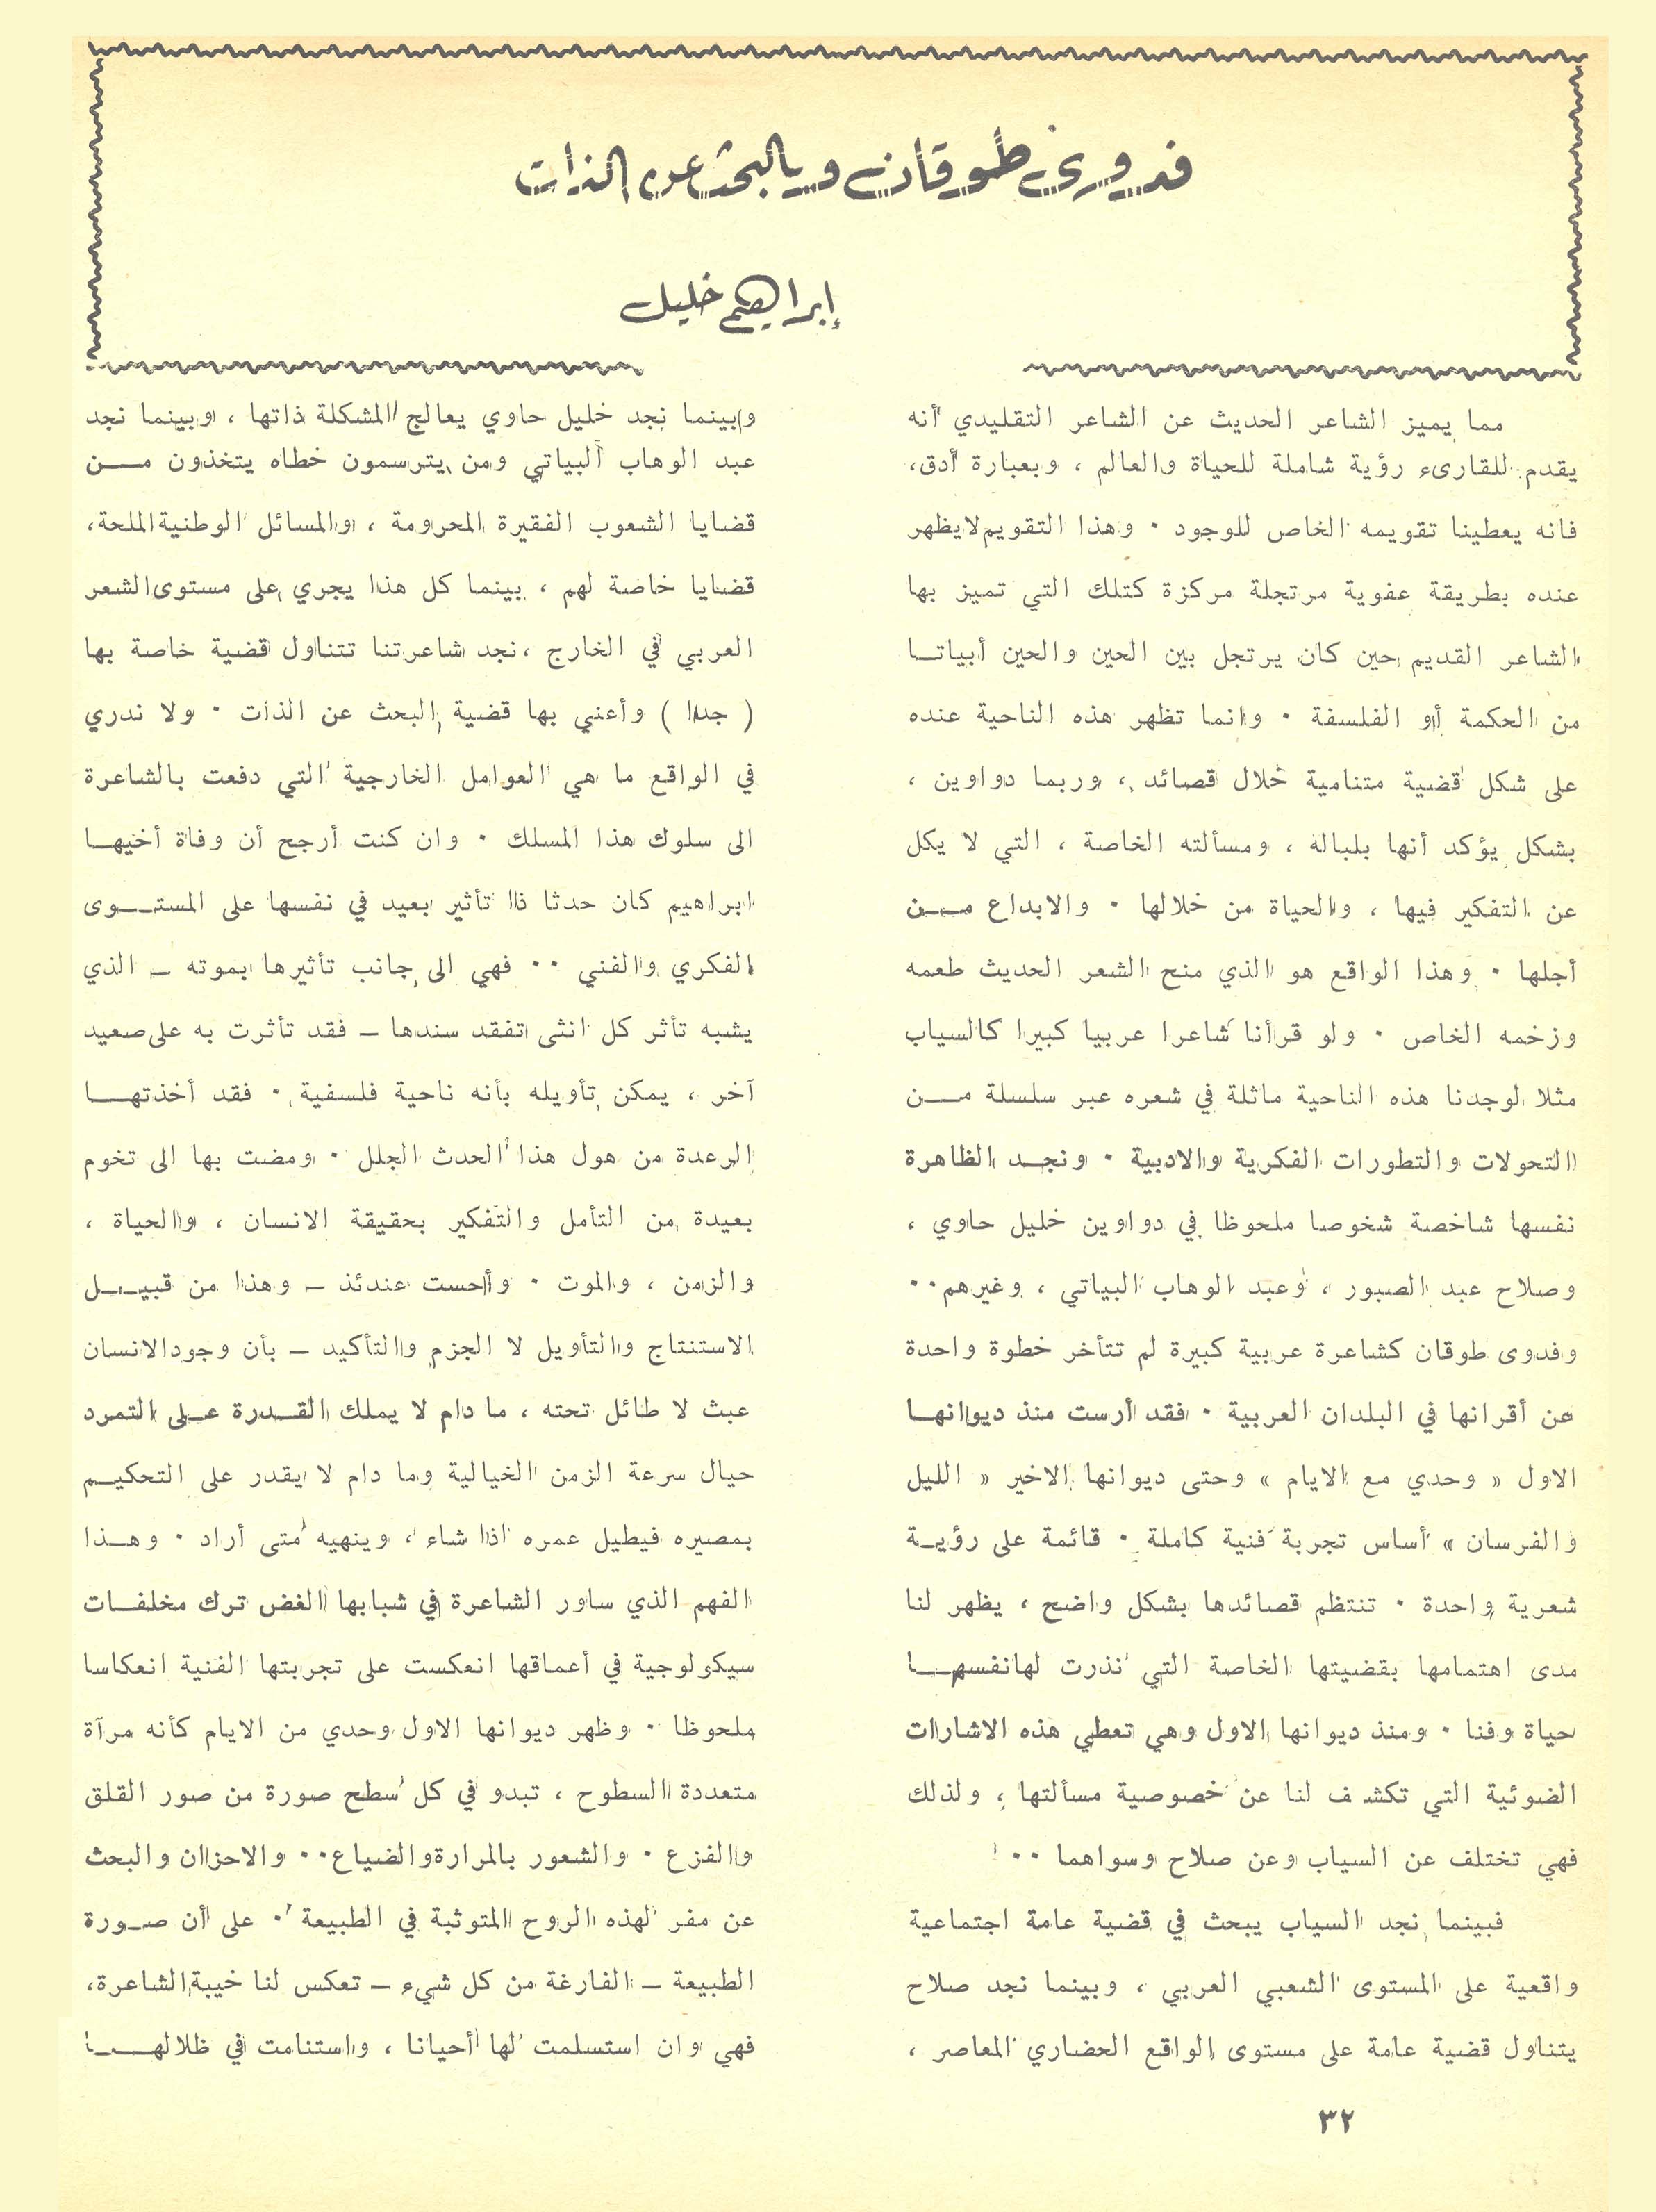 فدوى طوقان والبحث عن الذات
إبراهيم خليل
مما يميز الشاعر الحديث عن الشاعر التقليدي أنه
يقدم للقارىء رؤية شاملة للحياة والعالم ، وبعبارة أدق،
فانه يعطينا تقويمه الخاص للوجود ٠ وهذا التقويم لايظهر
عنده بطريقة عفوية مرتجلة مركزة كتلك التي تميز بها
الشاعر القديم حين كان يرتجل بين الحين والحين أبياتا
من الحكمة أو الفلسفة ٠ وانما تظهر هذه الناحية عنده
على شكل قضية متنامية خلال قصائد ، وربما دواوين ،
بشكل يؤكد أنها بلباله ، ومسألته الخاصة ، التي لا يكل
عن التفكير فيها ، والحياة من خلالها ٠ والابداع مـن
أجلها ٠ وهذا الواقع هو الذي منح الشعر الحديث طعمه
وزخمه الخاص ٠ ولو قرأنا شاعرا عربيا كبيرا كالسياب
مثلا لوجدنا هذه الناحية ماثلة في شعره عبر سلسلة مـن
التحولات والتطورات الفكرية والادبية ٠ ونجـد الظاهرة
نفسها شاخصة شخوصا ملحوظا في دواوين خليل حاوي ،
وصلاح عبد الصبور ، وعبد الوهاب البياتي ، وغيرهم ٠٠
وفدوى طوقان كشاعرة عربية كبيرة لم تتأخر خطوة واحدة
عن أقرانها في البلدان العربية ٠ فقد أرست منذ ديوانهـا
الاول « وحدي مع الايام » وحتى ديوانها الاخير « الليل
والفرسان » أساس تجربة فنية كاملة ٠ قائمة على رؤيـة
شعرية واحدة ٠ تنتظم قصائدها بشكل واضح ، يظهر لنا
مدى اهتمامها بقضيتها الخاصة التي نذرت لهانفسهـا
حياة وفنا ٠ ومنذ ديوانها الاول وهي تعطي هذه الاشارات
الضوئية التي تكشف لنا عن خصوصية مسألتها ، ولذلك
فهي تختلف عن السياب وعن صلاح وسواهما ٠٠
فبينما نجد السياب يبحث في قضية عامة اجتماعية
واقعية على المستوى الشعبي العربي ، وبينما نجد صلاح
يتناول قضية عامة على مستوى الواقع الحضاري المعاصر ،
وبينما نجد خليل حاوي يعالج المشكلة ذاتها ، وبينما نجد
عبد الوهاب البياتي ومن يترسمون خطاه يتخذون مـن
قضايا الشعوب الفقيرة المحرومة ، والمسائل الوطنية الملحة،
قضايا خاصة لهم ، بينما كل هذا يجري على مستوى الشعر
العربي في الخارج ، نجد شاعرتنا تتناول قضية خاصة بها
( جدا ) وأعني بها قضية البحث عن الذات ٠ ولا ندري
في الواقع ما هي العوامل الخارجية التي دفعت بالشاعرة
الى سلوك هذا المسلك ٠ وان كنت أرجح أن وفاة أخيهـا
ابراهيم كان حدثا ذا تأثير بعيد في نفسها على المستـوى
الفكري والفني ٠٠ فهي الى جانب تأثيرها بموته ـ الذي
يشبه تأثر كل انثى تفقد سندها ـ فقد تأثرت به على صعيد
آخر ، يمكن تأويله بأنه ناحية فلسفية ٠ فقد أخذتهـا
الرعدة من هول هذا الحدث الجلل ٠ ومضت بها الى تخوم
بعيدة من التأمل والتفكير بحقيقة الانسان ، والحياة ،
والزمن ، والموت ٠ وأحست عندئذ ـ وهذا من قبيـل
الاستنتاج والتأويل لا الجزم والتأكيد ـ بأن وجود الانسان
عبث لا طائل تحته ، ما دام لا يملك القـدرة عـلى التمرد
حيال سرعة الزمن الخيالية وما دام لا يقدر على التحكيـم
بمصيره فيطيل عمره اذا شاء ، وينهيه متى أراد ٠ وهـذا
الفهم الذي ساور الشاعرة في شبابها الغض ترك مخلفـات
سيكولوجية في أعماقها انعكست على تجربتها الفنية انعكاسا
ملحوظا ٠ وظهر ديوانها الاول وحدي من الايام كأنه مرآة
متعددة السطوح ، تبدو في كل سطح صورة من صور القلق
والفزع ٠ والشعور بالمرارة والضياع ٠٠ والاحزان والبحث
عن مفر لهذه الروح المتوثبة في الطبيعة ٠ على أن صـورة
الطبيعة ـ الفارغة من كل شيء ـ تعكس لنا خيبة الشاعرة،
فهي وان استسلمت لها أحيانا ، واستنامت في ظلالهـا
٣٢